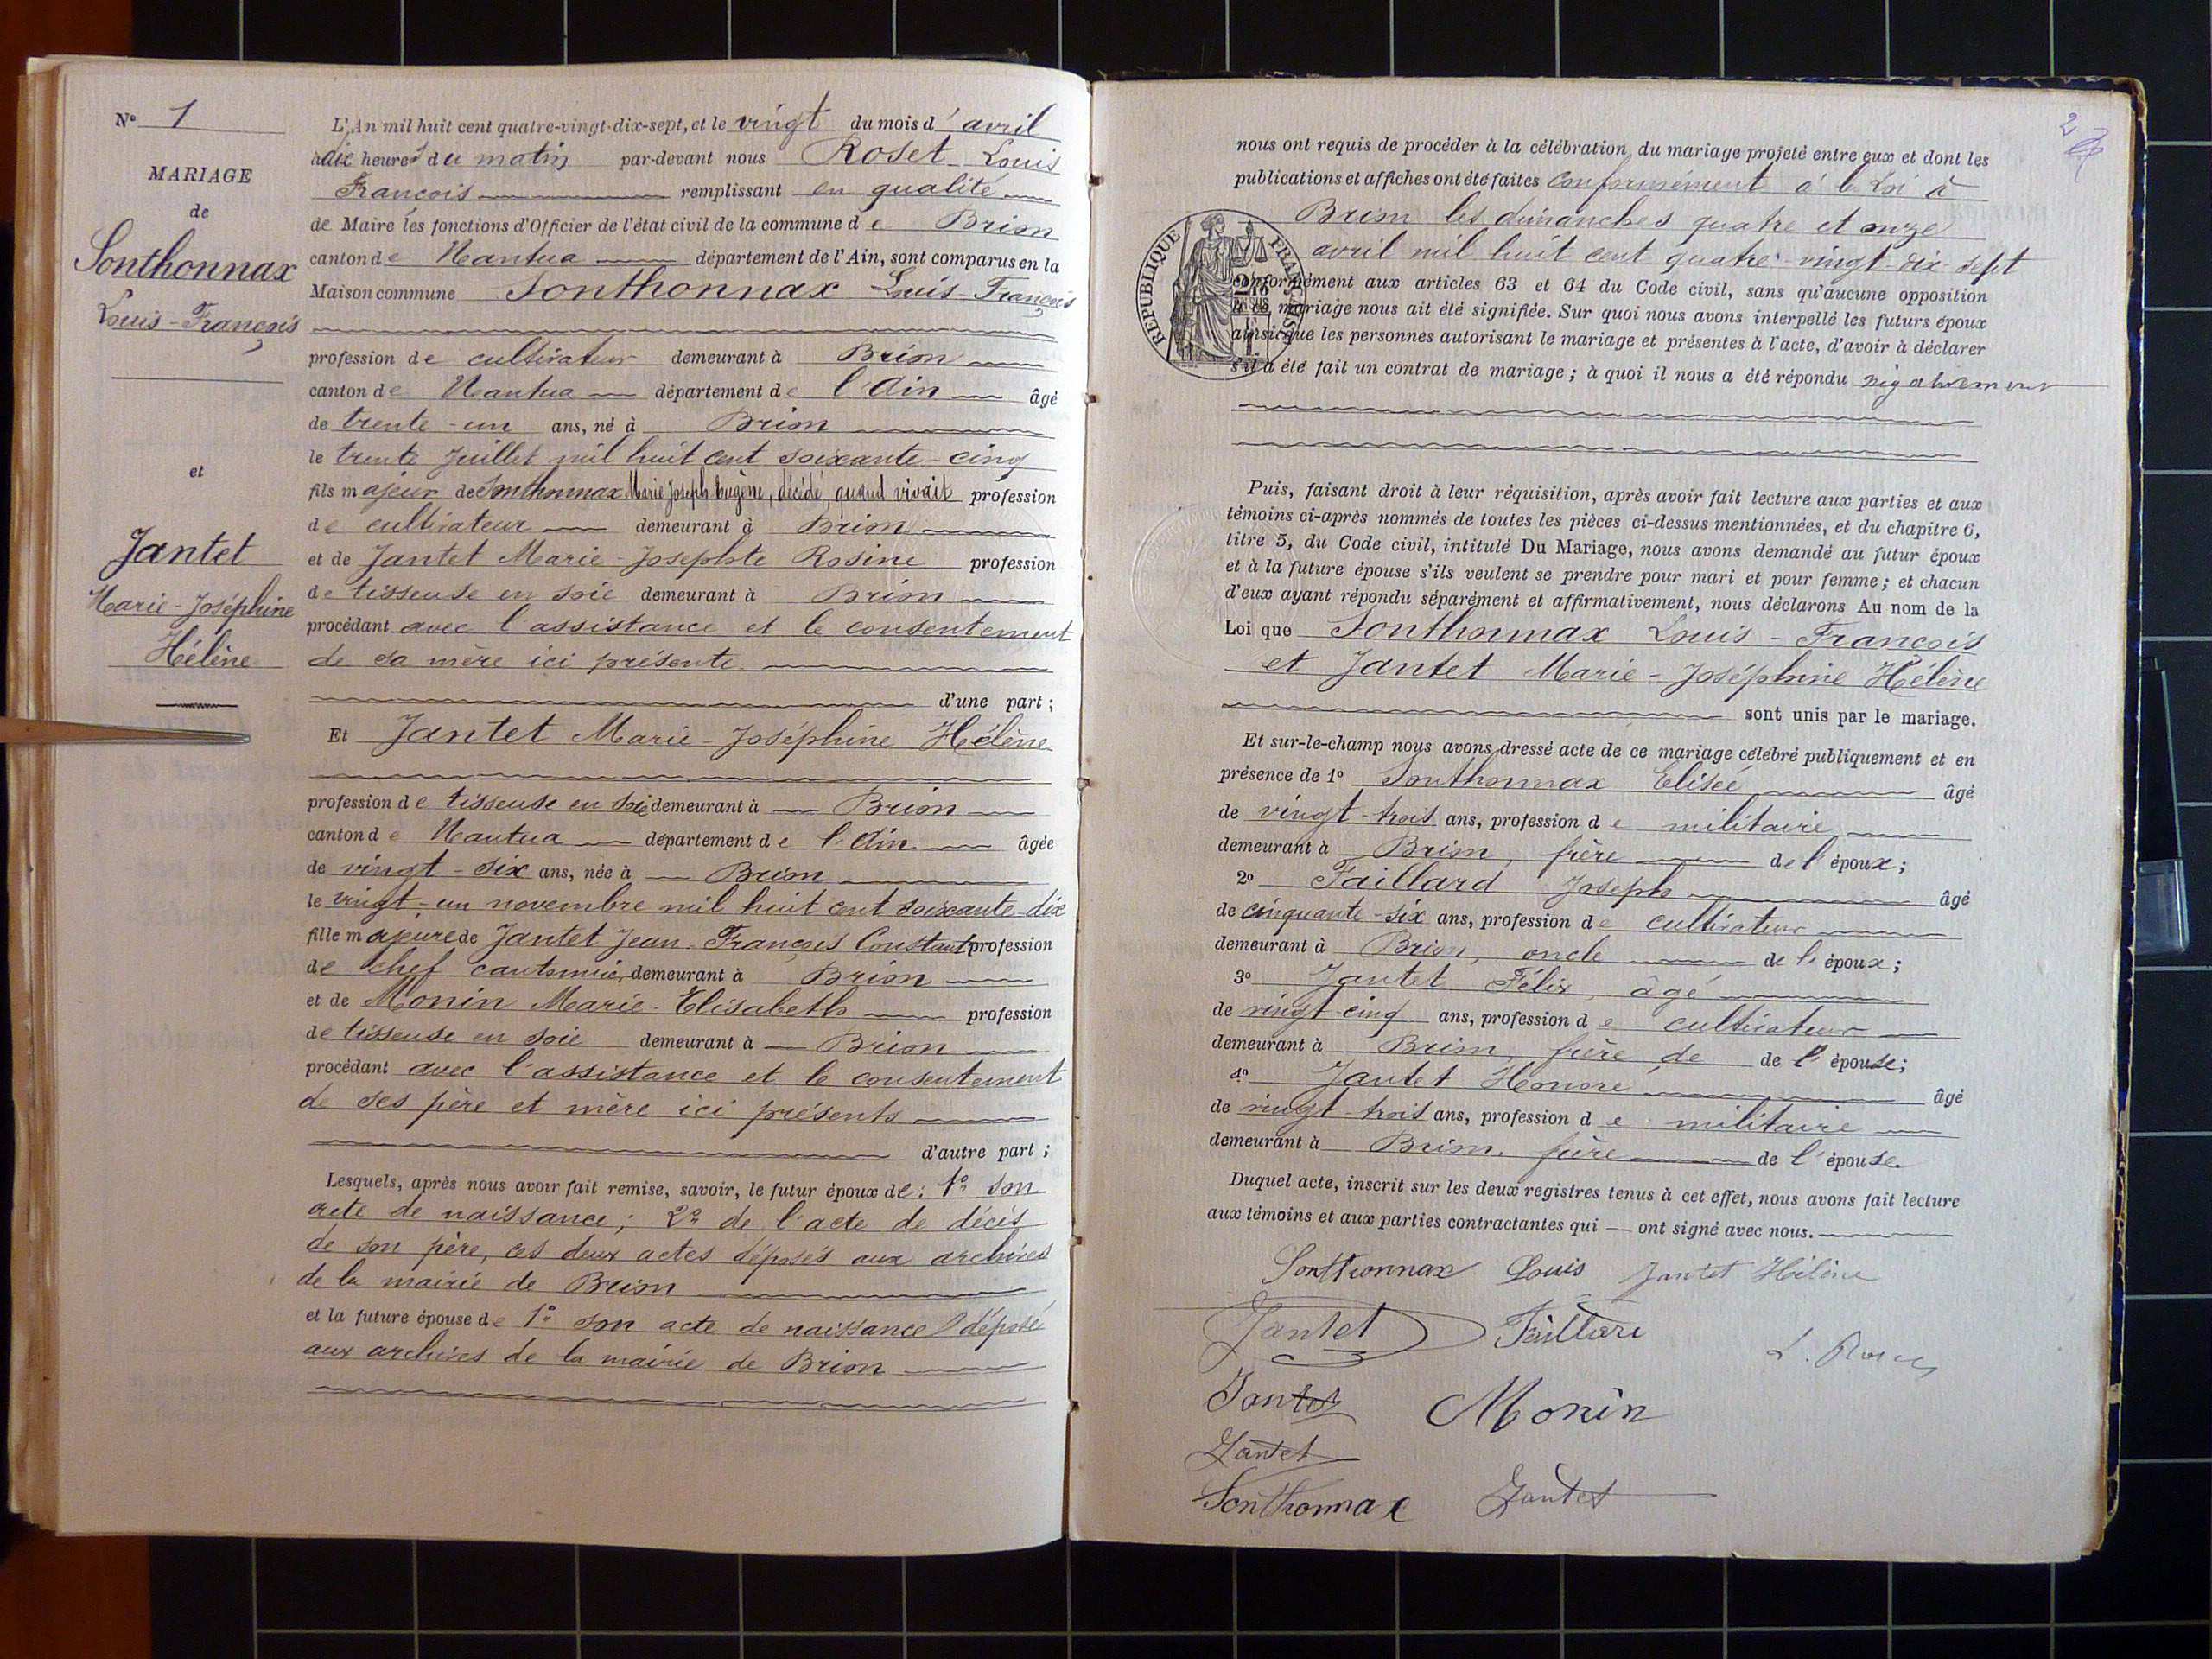 N° 1
MARIAGE
de
Sonthonnax
Louis-François
et
Jantet
Marie-Joséphine
Hélène
L'An mil huit cent quatre-vingt-dix-sept, et le vingt du mois d'avril
à dix heures du matin par-devant nous Roset Louis
François remplissant en qualité
de Maire les fonctions d'Officier de l'état civil de la commune de Brion
canton de Nantua département de l'Ain, sont comparus en la
Maison commune Sonthonnax Louis-François
profession de cultivateur demeurant à Brion
canton de Nantua département de l'Ain âgé
de trente-un ans, né à Brion
le trente Juillet mil huit cent soixante-cinq
fils majeur de Sonthonnax Marie Joseph Eugène, décédé, quand vivait profession
de cultivateur demeurant à Brion
et de Jantet Marie-Josephte Rosine profession
de tisseuse en soie demeurant à Brion
procédant avec l'assistance et le consentement
de sa mère ici présente
d'une part;
Et Jantet Marie-Joséphine Hélène
profession de tisseuse en soie demeurant à Brion
canton de Nantua département de l'Ain âgée
de vingt-six ans, née à Brion
le vingt-un novembre mil huit cent soixante-dix
fille majeure de Jantet Jean-François Constant profession
de chef cantonnier demeurant à Brion
et de Monin Marie-Elisabeth profession
de tisseuse en soie demeurant à Brion
procédant avec l'assistance et le consentement
de ses père et mère ici présents
d'autre part;
Lesquels, après nous avoir fait remise, savoir, le futur époux de: 1° son
acte de naissance; 2° de l'acte de décès
de son père, ces deux actes déposés aux archives
de la mairie de Brion
et la future épouse de 1° son acte de naissance déposé
aux archives de la mairie de Brion
2
nous ont requis de procéder à la célébration du mariage projeté entre eux et dont les
publications et affiches ont été faites conformément à la Loi à
Brion les dimanches quatre et onze
avril mil huit cent quatre-vingt-dix-sept
RÉPUBLIQUE FRANÇAISE
conformément aux articles 63 et 64 du Code civil, sans qu'aucune opposition
à ce mariage nous ait été signifiée. Sur quoi nous avons interpellé les futurs époux
ainsi que les personnes autorisant le mariage et présentes à l'acte, d'avoir à déclarer
s'il a été fait un contrat de mariage; à quoi il nous a été répondu négativement
Puis, faisant droit à leur réquisition, après avoir fait lecture aux parties et aux
témoins ci-après nommés de toutes les pièces ci-dessus mentionnées, et du chapitre 6,
titre 5, du Code civil, intitulé Du Mariage, nous avons demandé au futur époux
et à la future épouse s'ils veulent se prendre pour mari et pour femme; et chacun
d'eux ayant répondu séparément et affirmativement, nous déclarons Au nom de la
Loi que Sonthonnax Louis-François
et Jantet Marie-Joséphine Hélène
sont unis par le mariage.
Et sur-le-champ nous avons dressé acte de ce mariage célébré publiquement et en
présence de 1° Sonthonnax Elisée âgé
de vingt-trois ans, profession de militaire
demeurant à Brion, frère de l'époux;
2° Faillard Joseph âgé
de cinquante-six ans, profession de cultivateur
demeurant à Brion, oncle de l'époux;
3° Jantet Félix, âgé
de vingt-cinq ans, profession de cultivateur
demeurant à Brion, frère de de l'épouse;
4° Jantet Honoré âgé
de vingt-trois ans, profession de militaire
demeurant à Brion, frère de l'épouse.
Duquel acte, inscrit sur les deux registres tenus à cet effet, nous avons fait lecture
aux témoins et aux parties contractantes qui ont signé avec nous.
Sonthonnax Louis Jantet Hélène
Jantet Faillard
L. Roset
Jantet Monin
Jantet
Sonthonnax Jantet